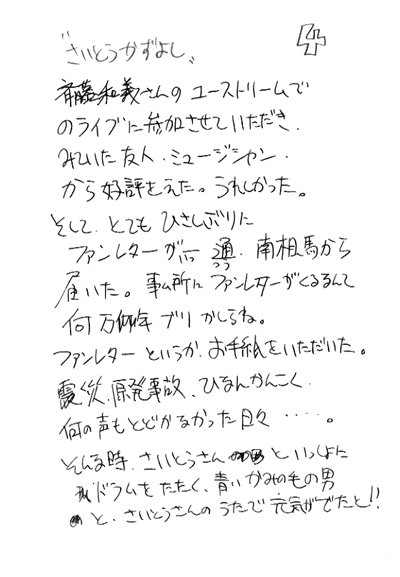 "さいとうかずよし"
斉藤和義さんの ユーストリームで
のライブに参加させていただき、
みていた友人・ミュージシャン・
から好評をえた。うれしかった。
そして、とても ひさしぶりに
ファンレターが 通、南相馬から
届いた。事ム所に ファンレターがくるなんて
何万年ブリ かしらね。
ファンレター というか、お手紙をいただいた。
震災、原発事故、ひなんかんこく、
何の声もとどかなかった日々 ・・・・。
そんな時、さいとうさん といっしょに
ドラムをたたく、青いかみの毛の男
と、さいとうさんの うたで 元気がでたと!!